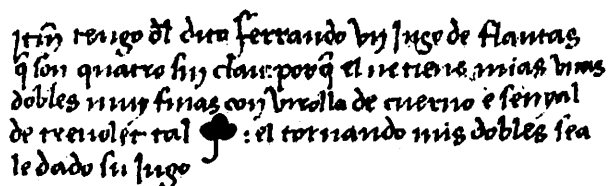 itm̃ tengo dl̃ dito ferrando vn jugo de flautas
q̃ son quatro sin claue porq̃ el me tiene mias vnas
dobles muy finas con virolla de cuerno e senyal
de treuolet tal : el tornando mis dobles sea
le dado su jugo